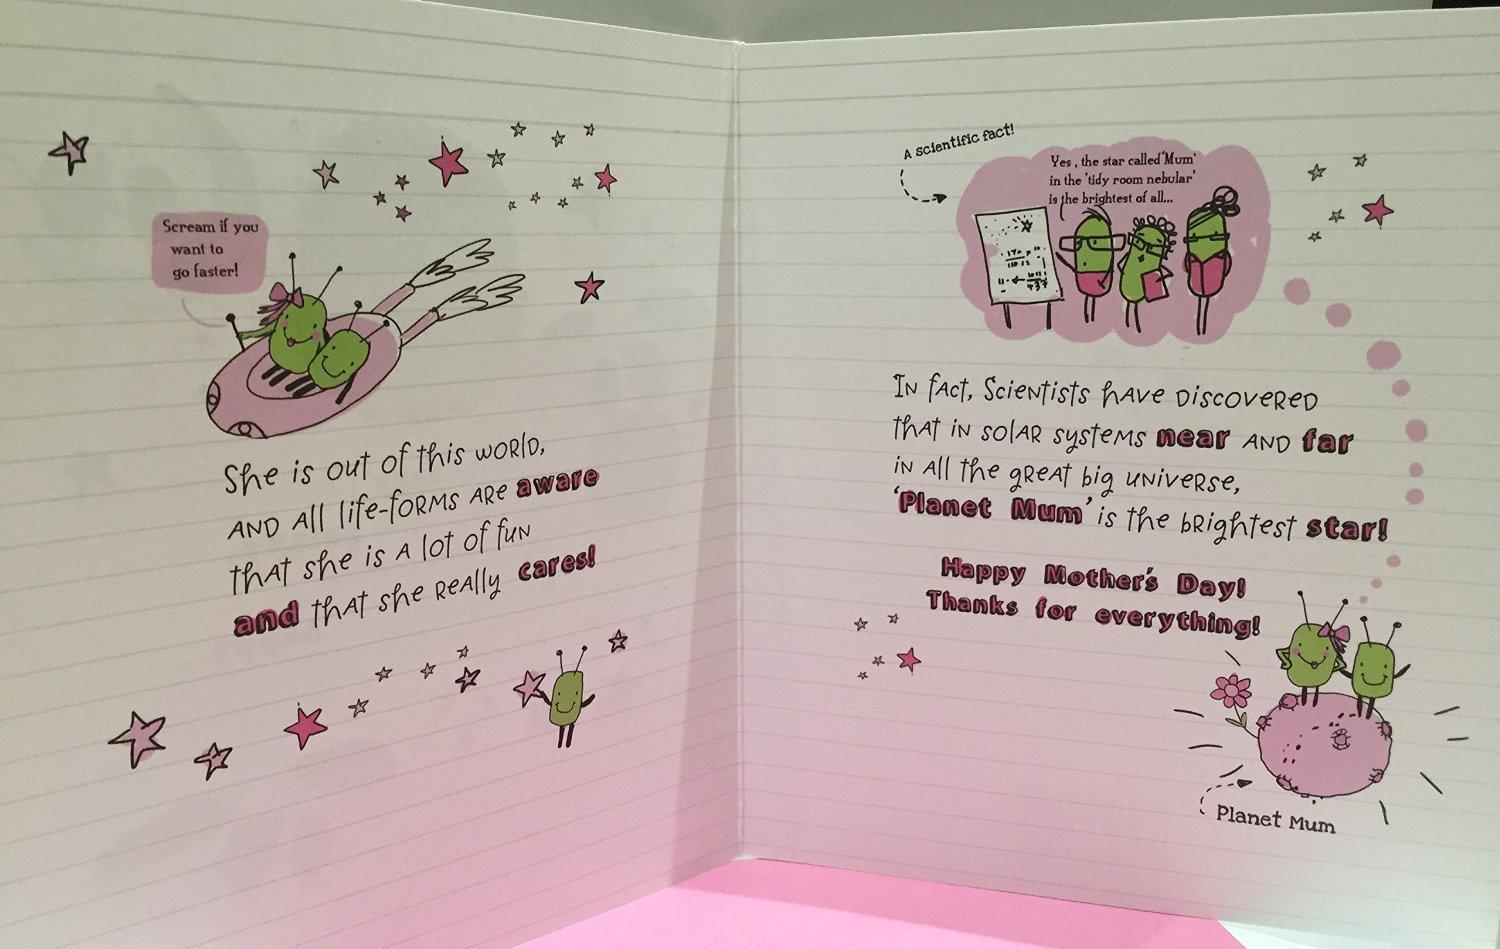 Scream if you
want to
go faster!
She is out of this world,
and all life-forms are aware
that she is a lot of fun
and that she really cares!
A scientific fact!
Yes, the star called 'Mum'
in the 'tidy room nebular'
is the brightest of all...
In fact, Scientists have discovered
that in solar systems near and far
in all the great big universe,
'Planet Mum' is the brightest star!
Happy Mother's Day!
Thanks for everything!
Planet Mum